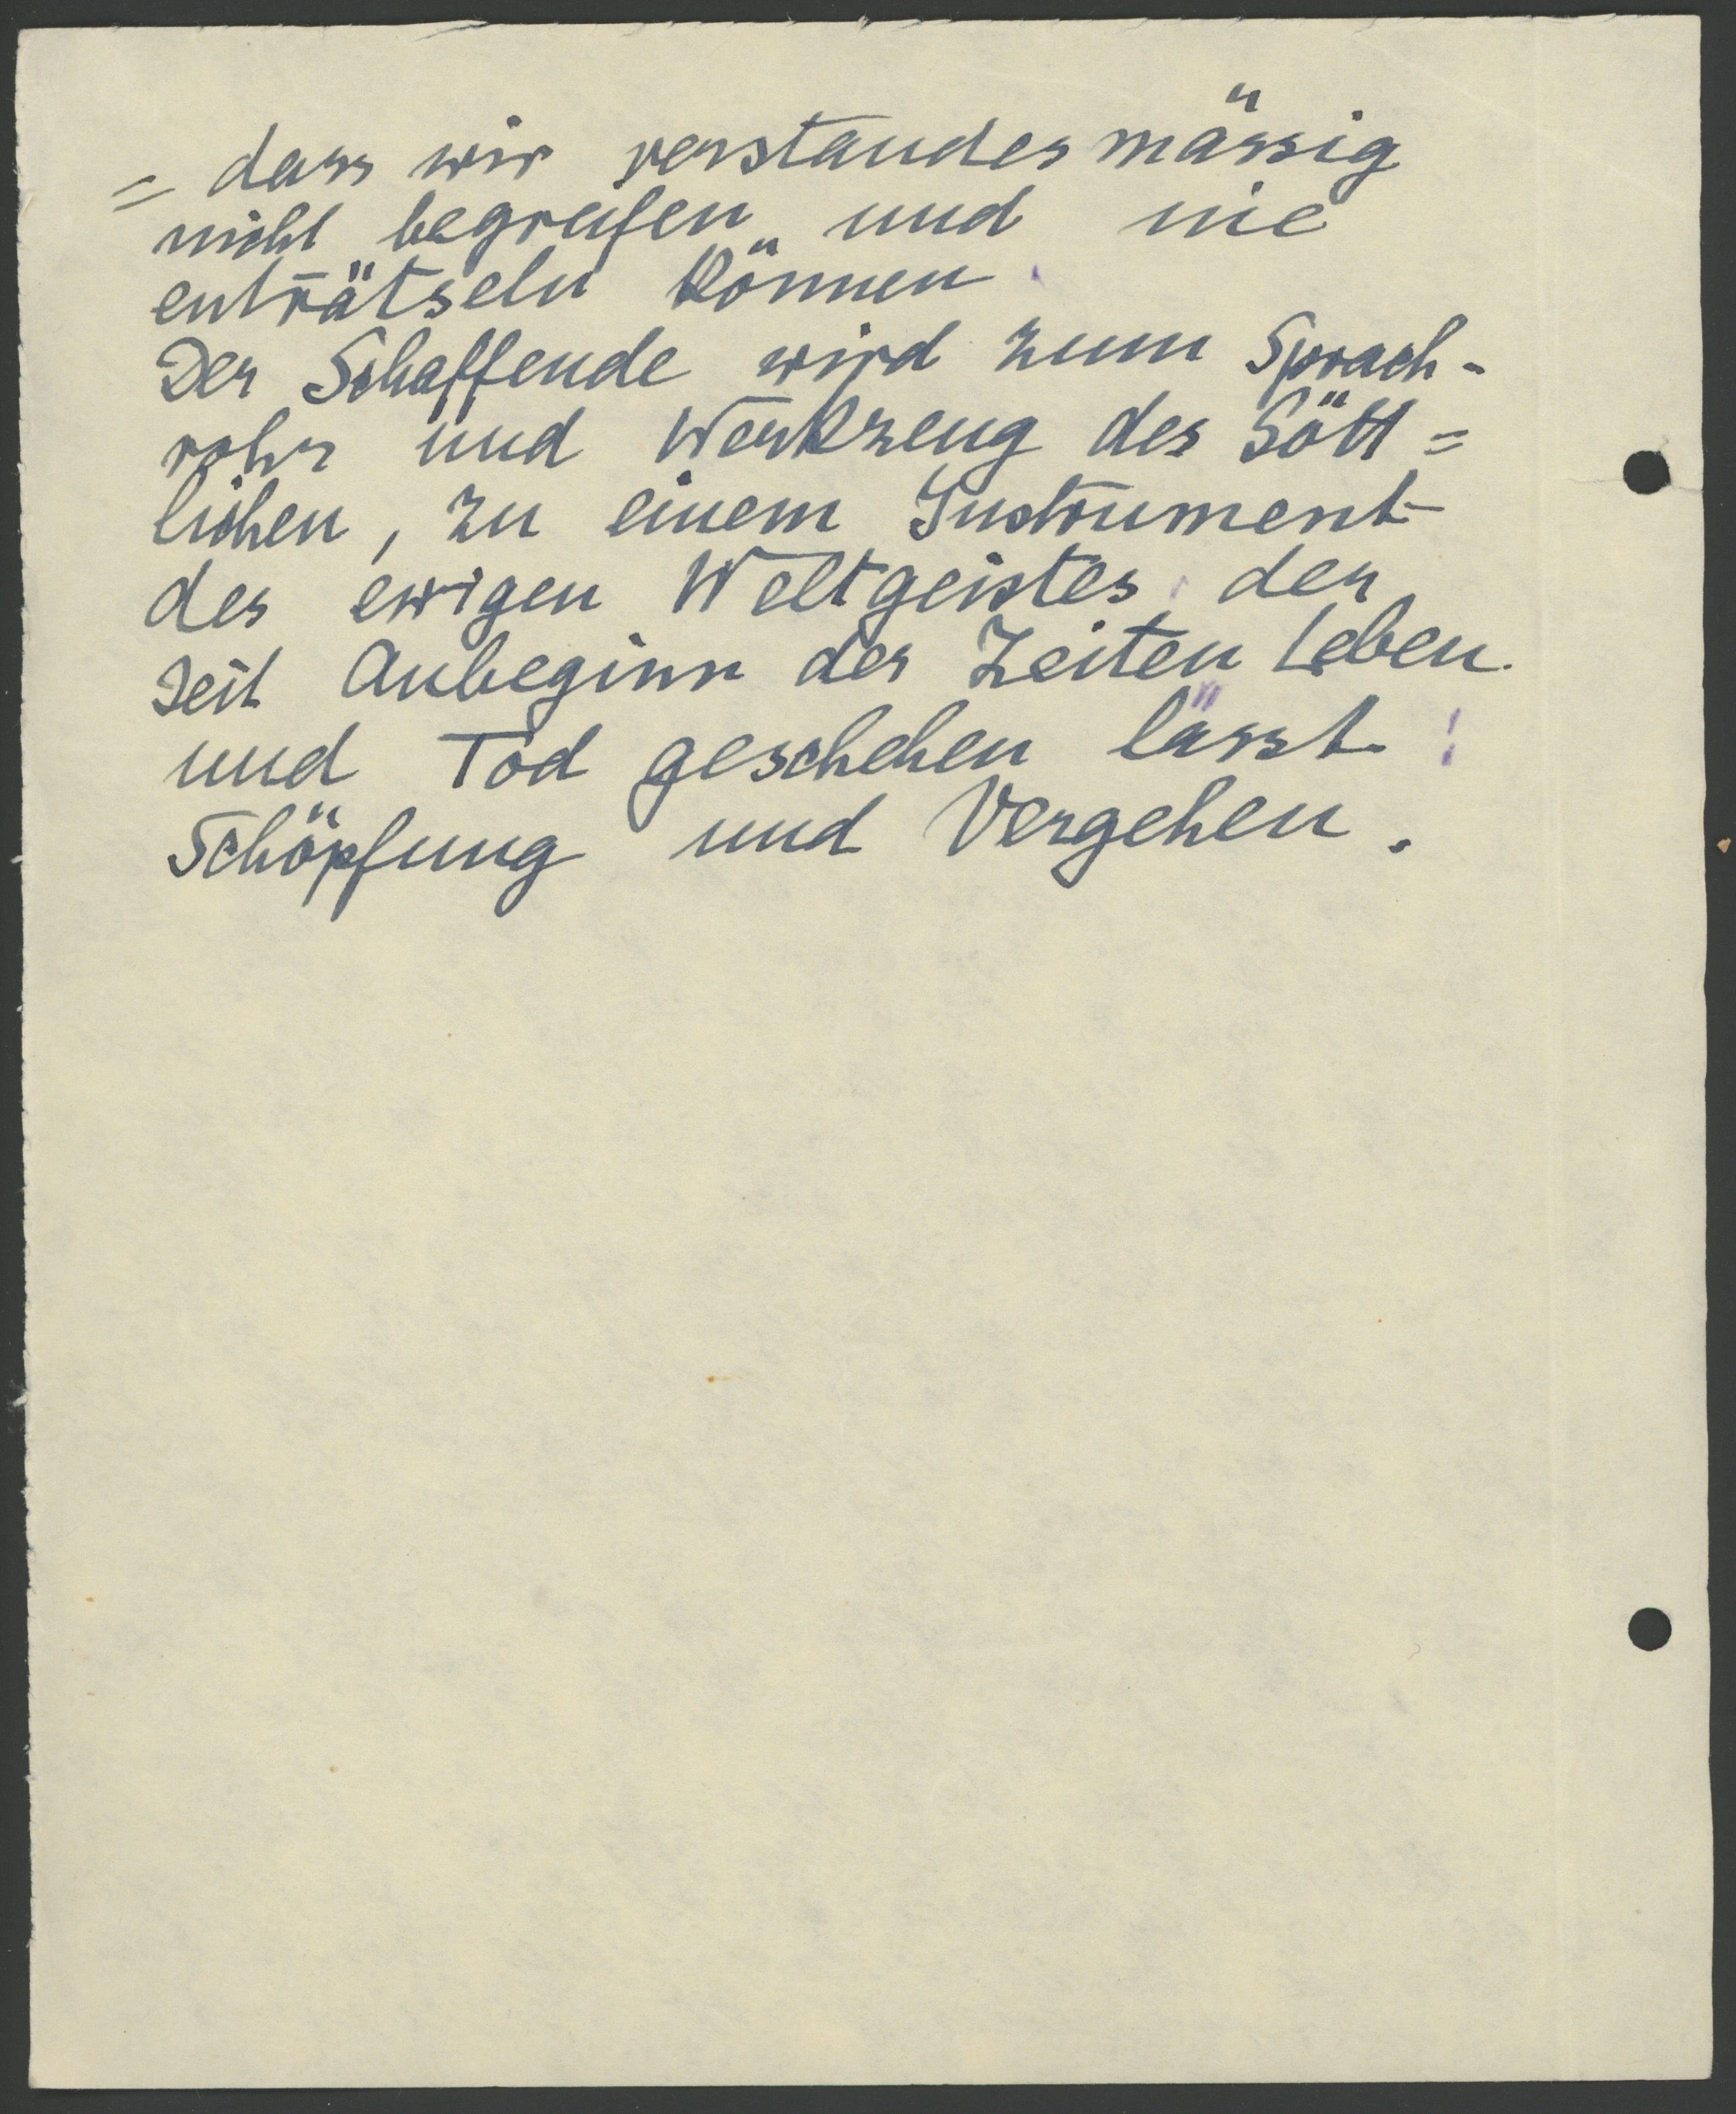 = dass wir verstandesmässig
nicht begreifen und nie
enträtseln können.
Der Schaffende wird zum Sprach-
rohr und Werkzeug des Gött=
lichen, zu einem Instrument
des ewigen Weltgeistes, der
seit Anbeginn der Zeiten Leben
und Tod geschehen lässt:
Schöpfung und Vergehen.